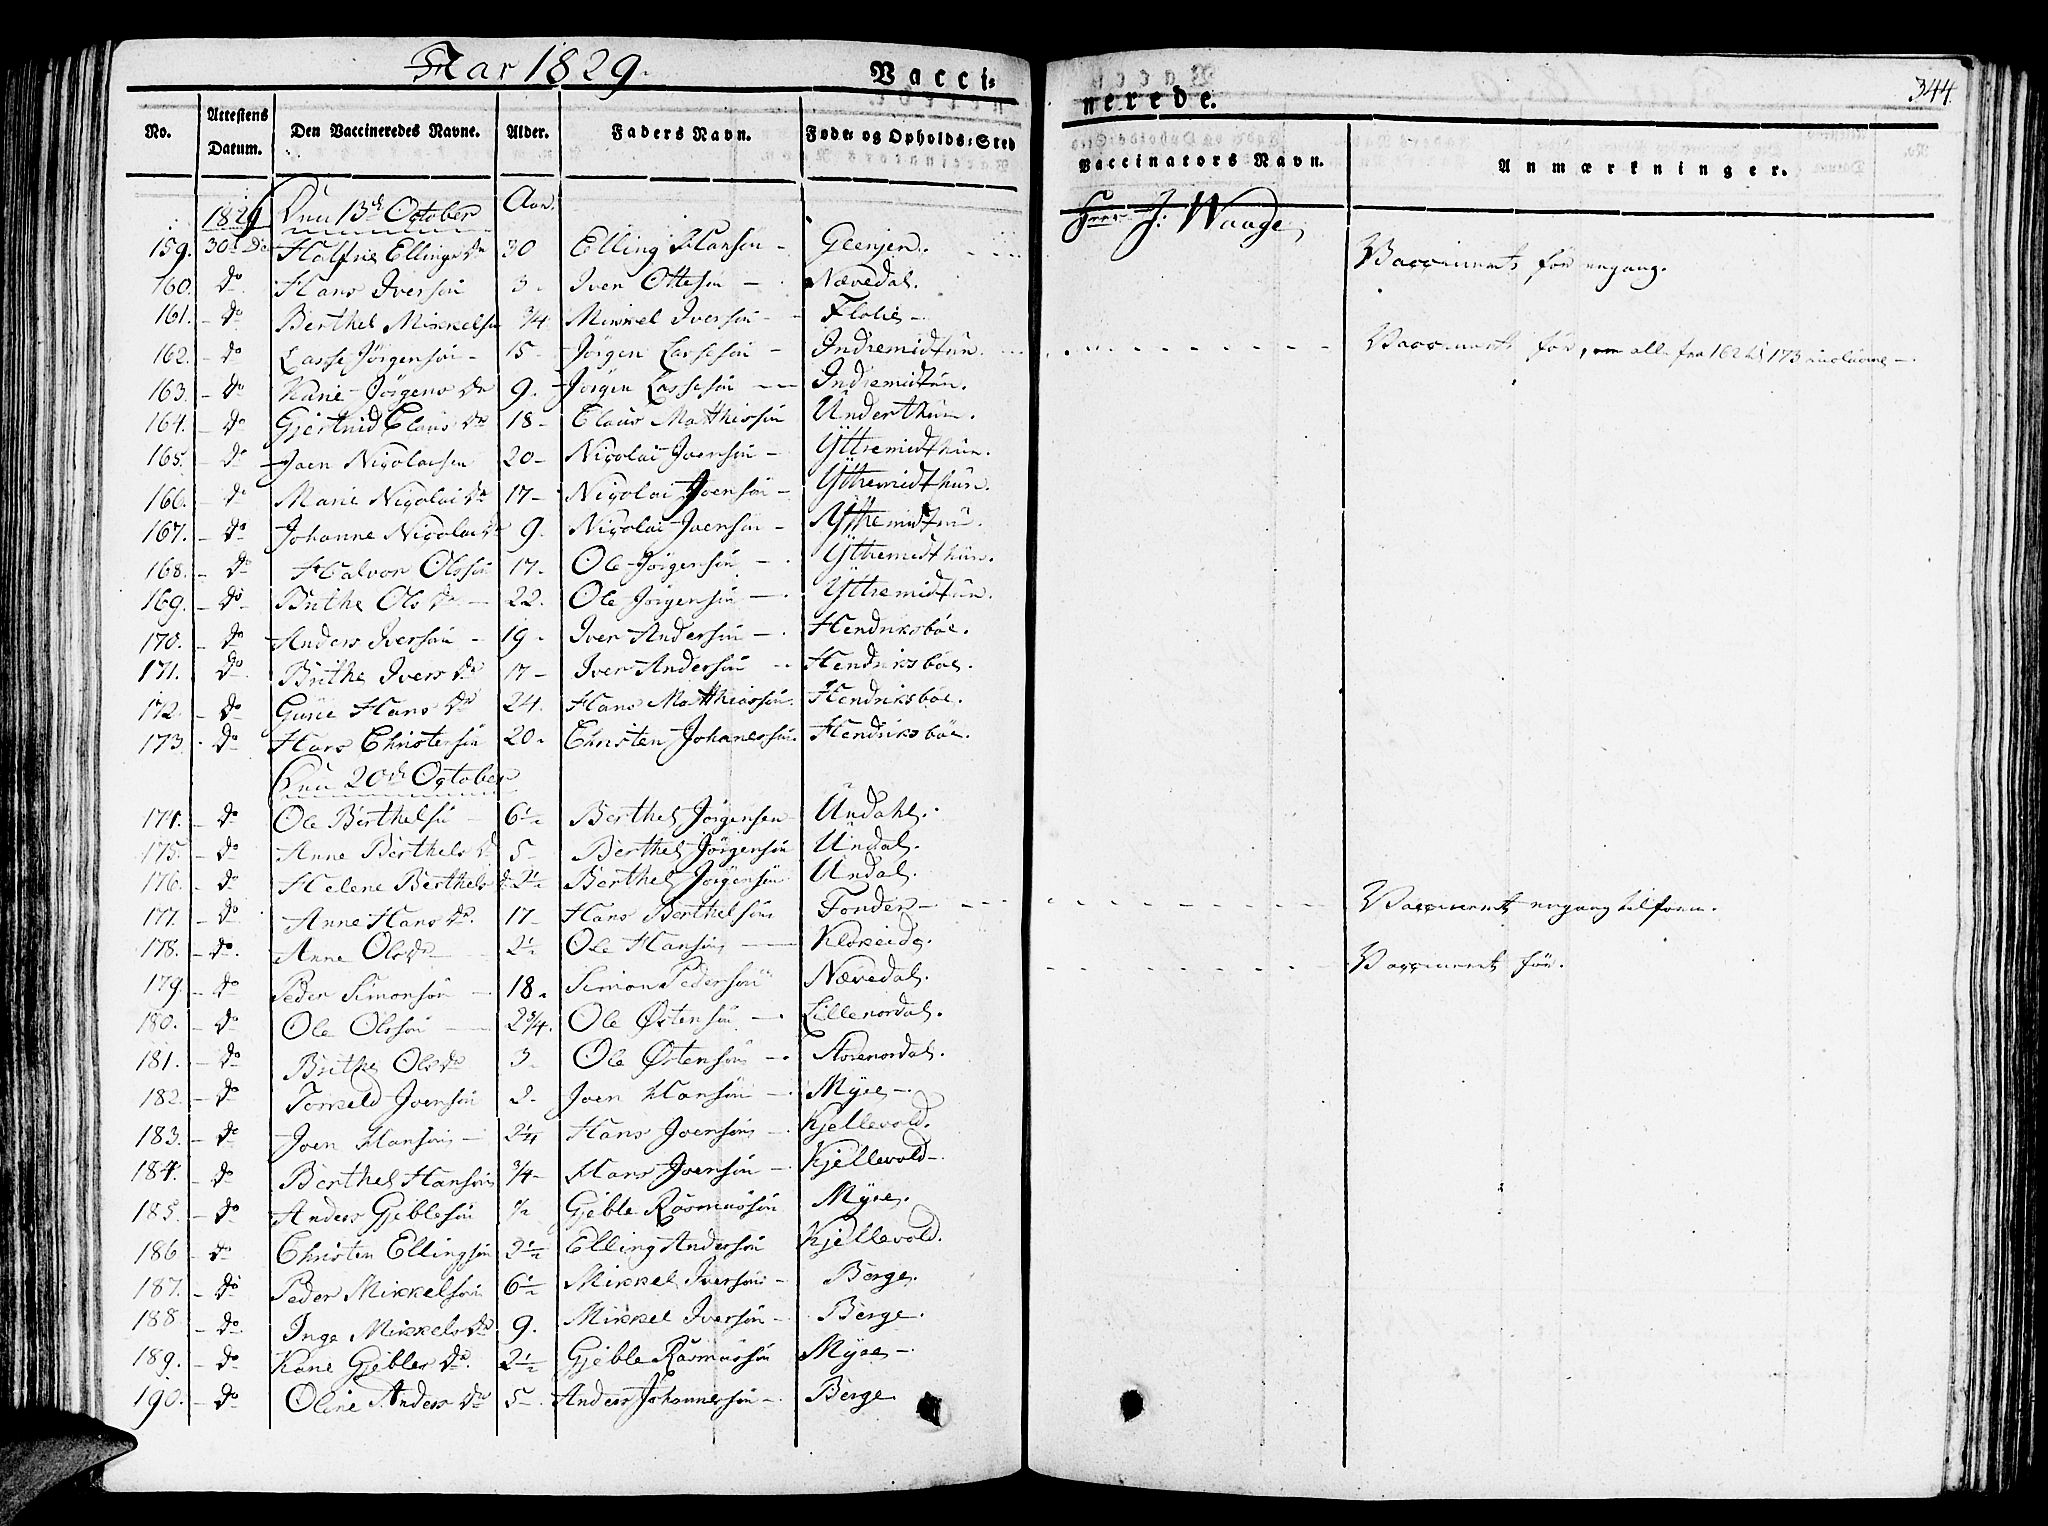 Aar 1829. Vacci-
nerede. 344.
No. Attestens Datum. Den Vaccineredes Navne. Alder. Faders Navn. Føde- og Opholds-Sted Vaccinators Navn. Anmærkninger.
1829 13de October Aar. J. Waage
159. 30 Elling Hansøn - Vaccineret før engang.
160. - do Hans Iversøn 3 - Iver Ottesøn - Nævedal.
161. - do Berthel Mikkelsøn 3/4 Mikkel Iversøn - Flolie -
162. - do Lasse Jörgensøn - 15 - Jörgen Lassesøn - Indremidtün. Vaccineret før, alle fra 162 til 173 inclusive -
163. - do Kari Jörgens Dr 9. Jörgen Lassesøn - Indremidtün.
164. - do Gjertrud Claus Dr 18 - Claus Matthiassøn Underthün.
165. - do Joen Nicolaisen 20 - Nicolai Joensøn - Yttremidthün.
166. - do Marie Nicolai Dr 17 - Nicolai Joensøn - Yttremidthün.
167. - do Johanne Nicolai Dr 9. Nicolai Joensøn - Yttremidtün.
168. - do Halvor Olssøn 17 - Ole Jörgensøn - Yttremidthün.
169. - do Brithe Ols Dr - 22. Ole Jörgensøn - Yttremidtün.
170. - do Anders Iversøn - 19 - Iver Andersøn - Hendriksbøe.
171. - do Brithe Ivers Dr 17 - Iver Andersøn - Hendriksbøe.
172. - do Gurie Hans Dr 24. Hans Matthiassøn. Hendriksbøe.
173. - do Hans Christensøn 20 - Christen Johanessøn. Hendriksbøe.
20de October
174. - do Ole Berthelsøn - 6 1/2 Berthel Jörgensen Undahl.
175. - do Anne Berthels D 5 - Berthel Jörgensøn Undal.
176. - do Helene Berthels d. 2 1/2 Berthel Jörgensøn Undal.
177. - do Anne Hans Dr. 17 - Hans Berthelsøn Fonder - Vaccineret engang tilforn.
178. - do. Anne Ols Dr 2 1/2 Ole Hansøn - Klokeide.
179. - do Peder Simonsøn - 18 - Simon Pedersøn Nævedal. Vaccineret før.
180. - do Ole Olssøn - 2 3/4. Ole Østensøn - Lillenordal.
181. - do Brithe Ols Dr 3 - Ole Østensøn - Storenordal.
182. - do Torkeld Joensøn 2 - Joen Hansøn - Myre -
183. - do Joen Hansøn - 2 1/4 Hans Joensøn - Kjellevold.
184. - do Berthel Hansøn 3/4 - Hans Joensøn - Kjellevold -
185. - do Anders Gjeblesøn 1/2 Gjeble Rasmussøn Myre.
186 - do Christen Ellingsøn 2 1/2 Elling Andersøn Kjellevold.
187. - do Peder Mikkelsøn 6 1/2 Mikkel Iversøn - Berge.
188. - do Inge Mikkels Dr 9. Mikkel Iversøn - Berge.
189. - do Kari Gjebles Dr. 2 1/2 Gjeble Rasmussøn Myre -
190. - do Oline Anders Dr 5 - Anders Johannessøn - Berge